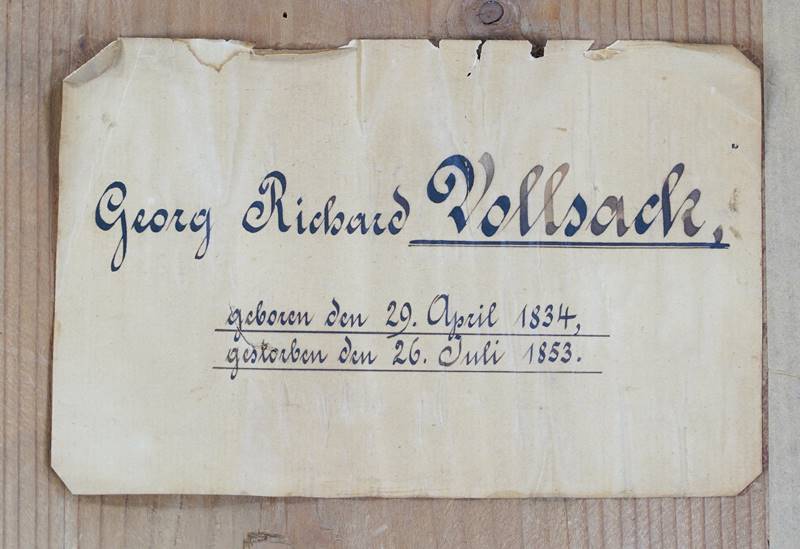 Georg Richard Vollsack,
geboren den 29. April 1834,
gestorben den 26. Juli 1853.